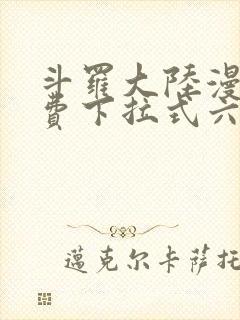 斗羅大陸漫
費下拉式六
邁克尔卡萨托